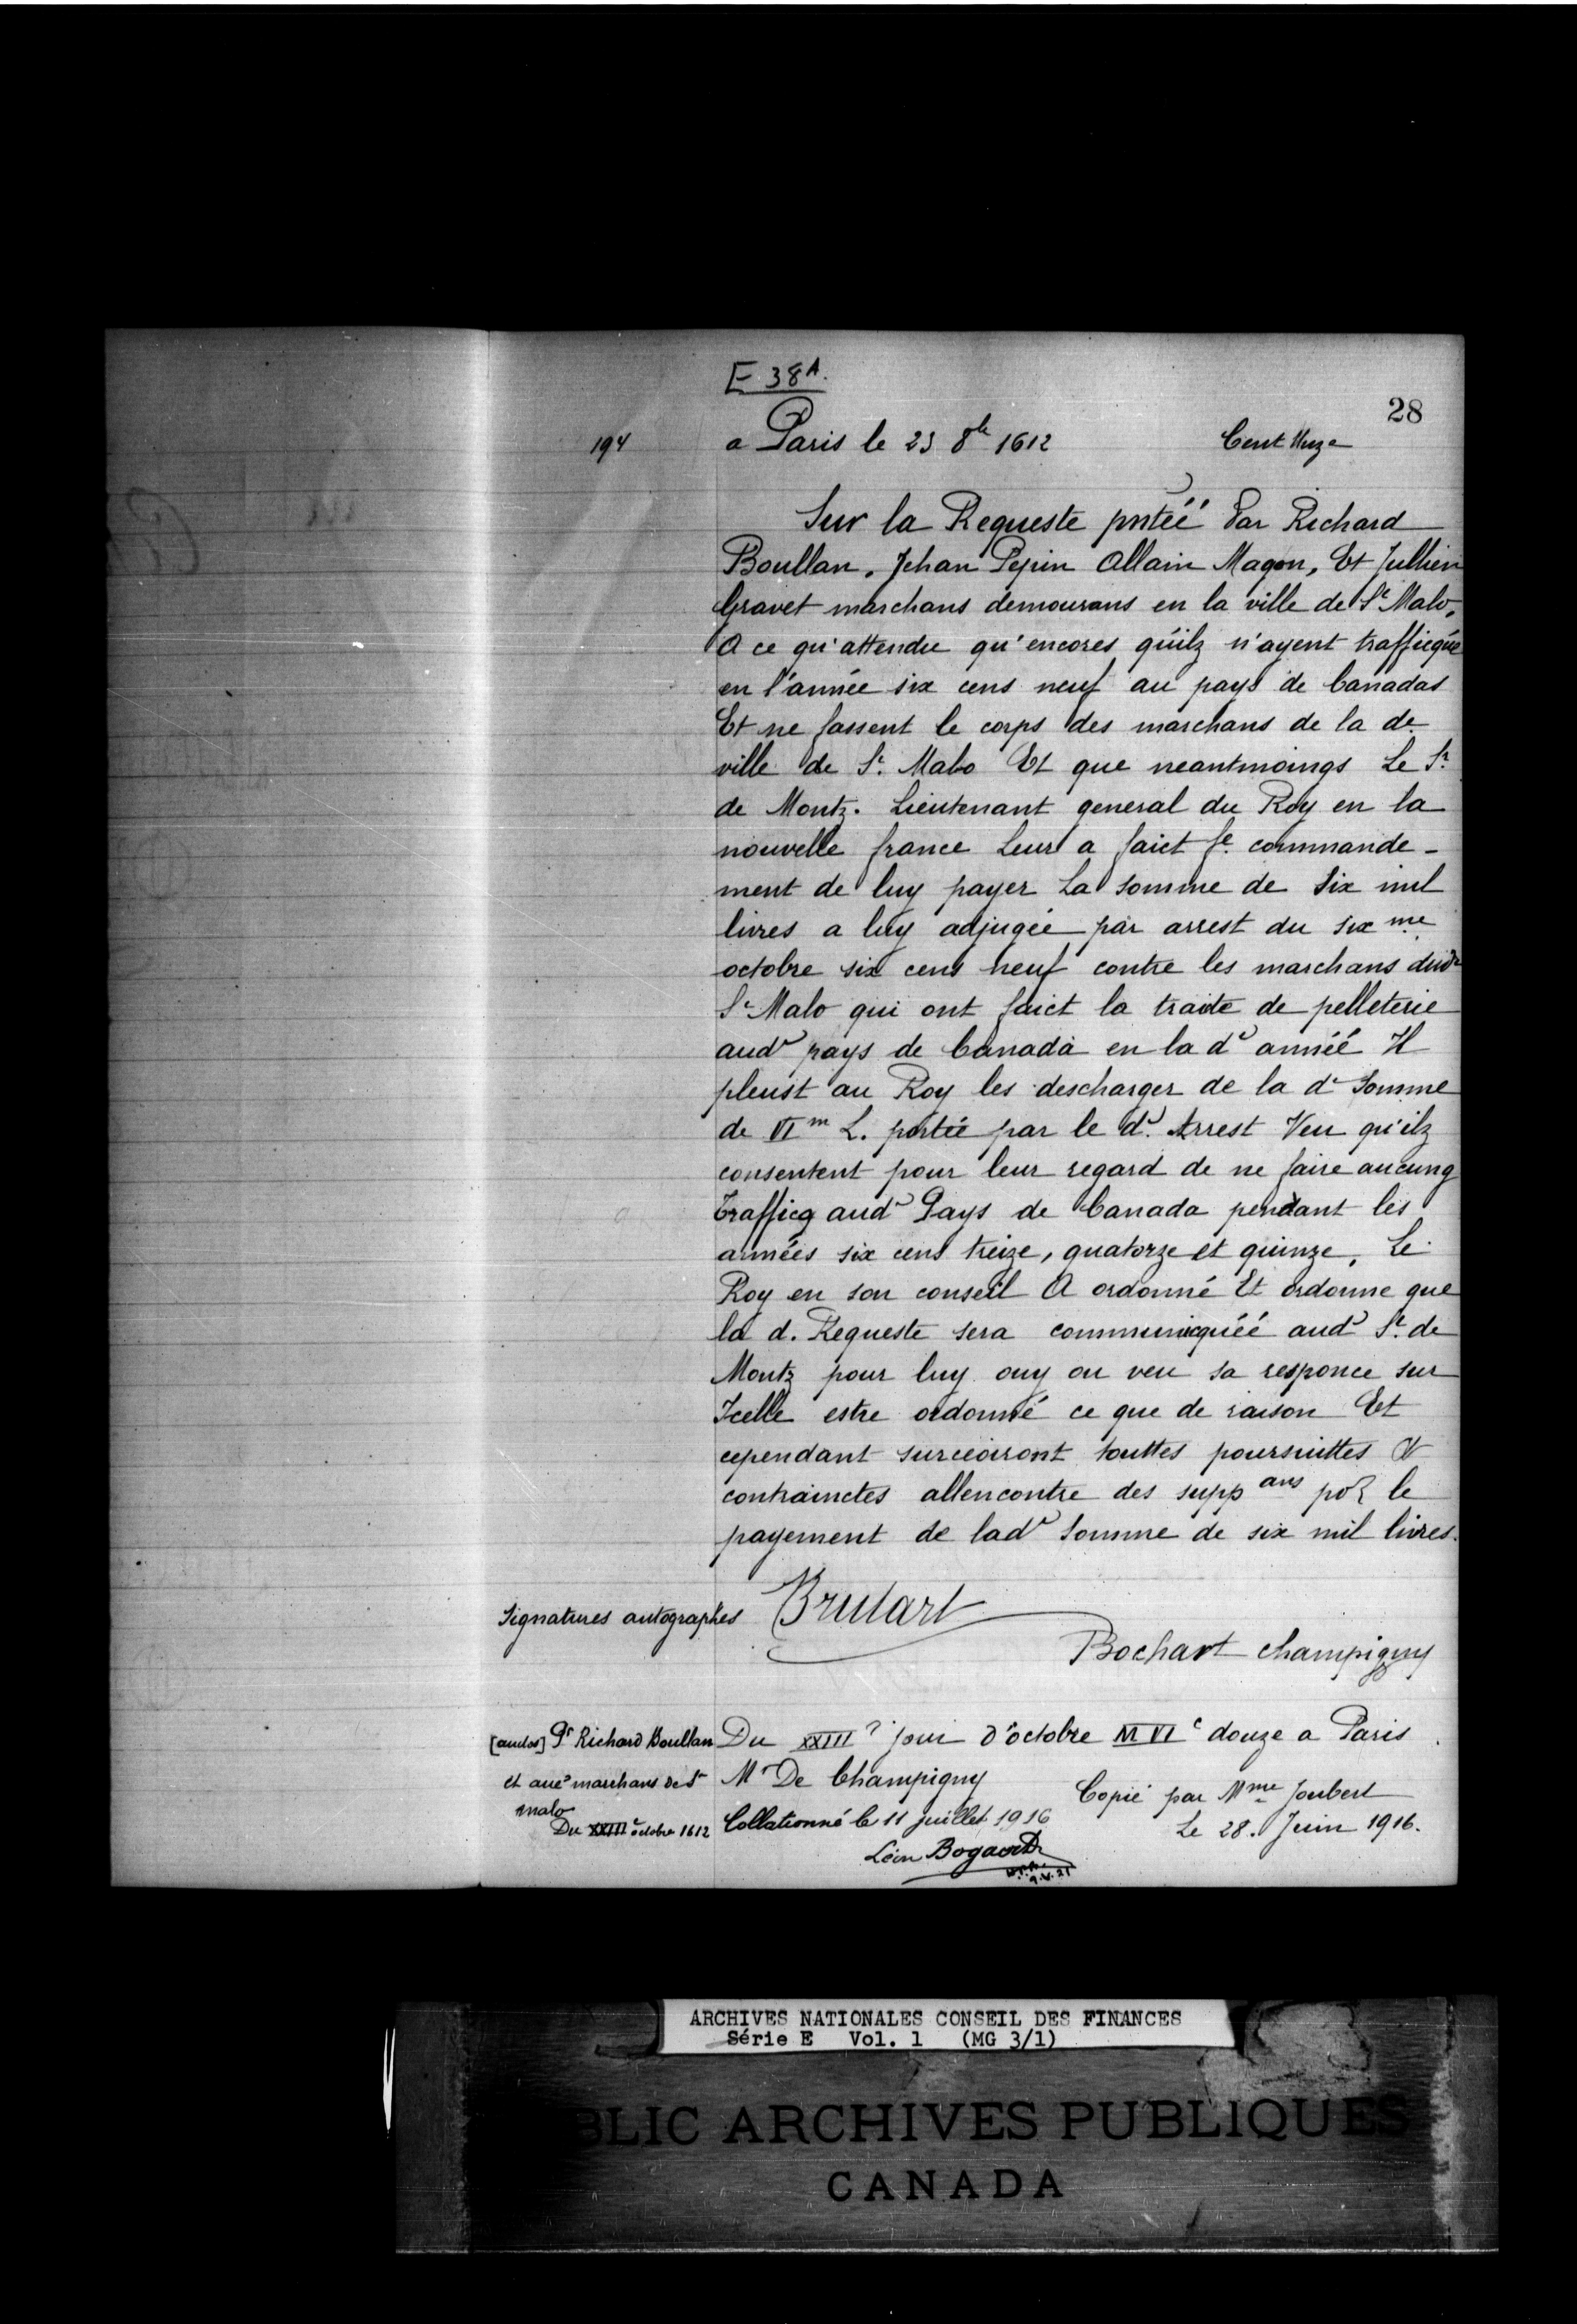 E 38A.
28
194 a Paris le 23 8bre 1612 Cent Unze
Sur la Requeste pntéé Par Richard
Boullan, Jehan Pepin Allain Magon, Et Jullien
Gravet marchans demourans en la ville de St Malo,
A ce qu'attendu qu'encores qu'ilz n'ayent trafficqué
en l'année six cens neuf au pays de Canadas
Et ne fassent le corps des marchans de la de
ville de St. Malo Et que neantmoings Le Sr.
de Montz. Lieutenant general du Roy en la
nouvelle france Leur a faict fe. commande-
ment de luy payer La somme de Six mil
livres a luy adjugée par arrest du six me
octobre six cens neuf contre les marchans dud
St Malo qui ont faict la traite de pelleterie
aud pays de Canada en la de annéé Il
pleust au Roy les descharger de la de Somme
de VIm L. portée par le d. Arrest Veu qu'ilz
consentent pour leur regard de ne faire aucung
Trafficq aud Pays de Canada pendant les
années six cens treize, quatorze et quinze, Le
Roy en son conseil A ordonné Et ordonne que
la d. Requeste sera communicquéé aud Sr. de
Montz pour luy ouy ou veu sa responce sur
Icelle estre ordonné ce que de raison Et
cependant surceoiront touttes poursuittes Et
contrainctes allencontre des supp ans por le
payement de lad Somme de six mil livres.
Signatures autographes Brulart
Bochart Champigny
[au dos] Pr Richard Boullan
et aues marchans de St
malo
Du XXIIIe octobre 1612
Du XXIII jour d'octobre M VIc douze a Paris
Mr De Champigny
Copié par Mme Joubert
Le 28. Juin 1916.
Collationné le 11 juillet 1916
Léon Bogaert
9.V.21
ARCHIVES NATIONALES CONSEIL DES FINANCES
Série E Vol. 1 (MG 3/1)
BLIC ARCHIVES PUBLIQUES
CANADA